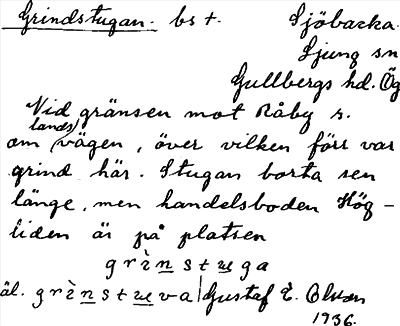 Grindstugan. bs †. Sjöbacka.
Ljung sn
Gullbergs hd. Ög
Vid gränsen mot Råby r.
om (lands)vägen, över vilken förr var
grind här. Stugan borta sen
länge, men handelsboden Hög-
liden är på platsen
grìnstuga
äl. grìnstuva | Gustaf E.
1936.